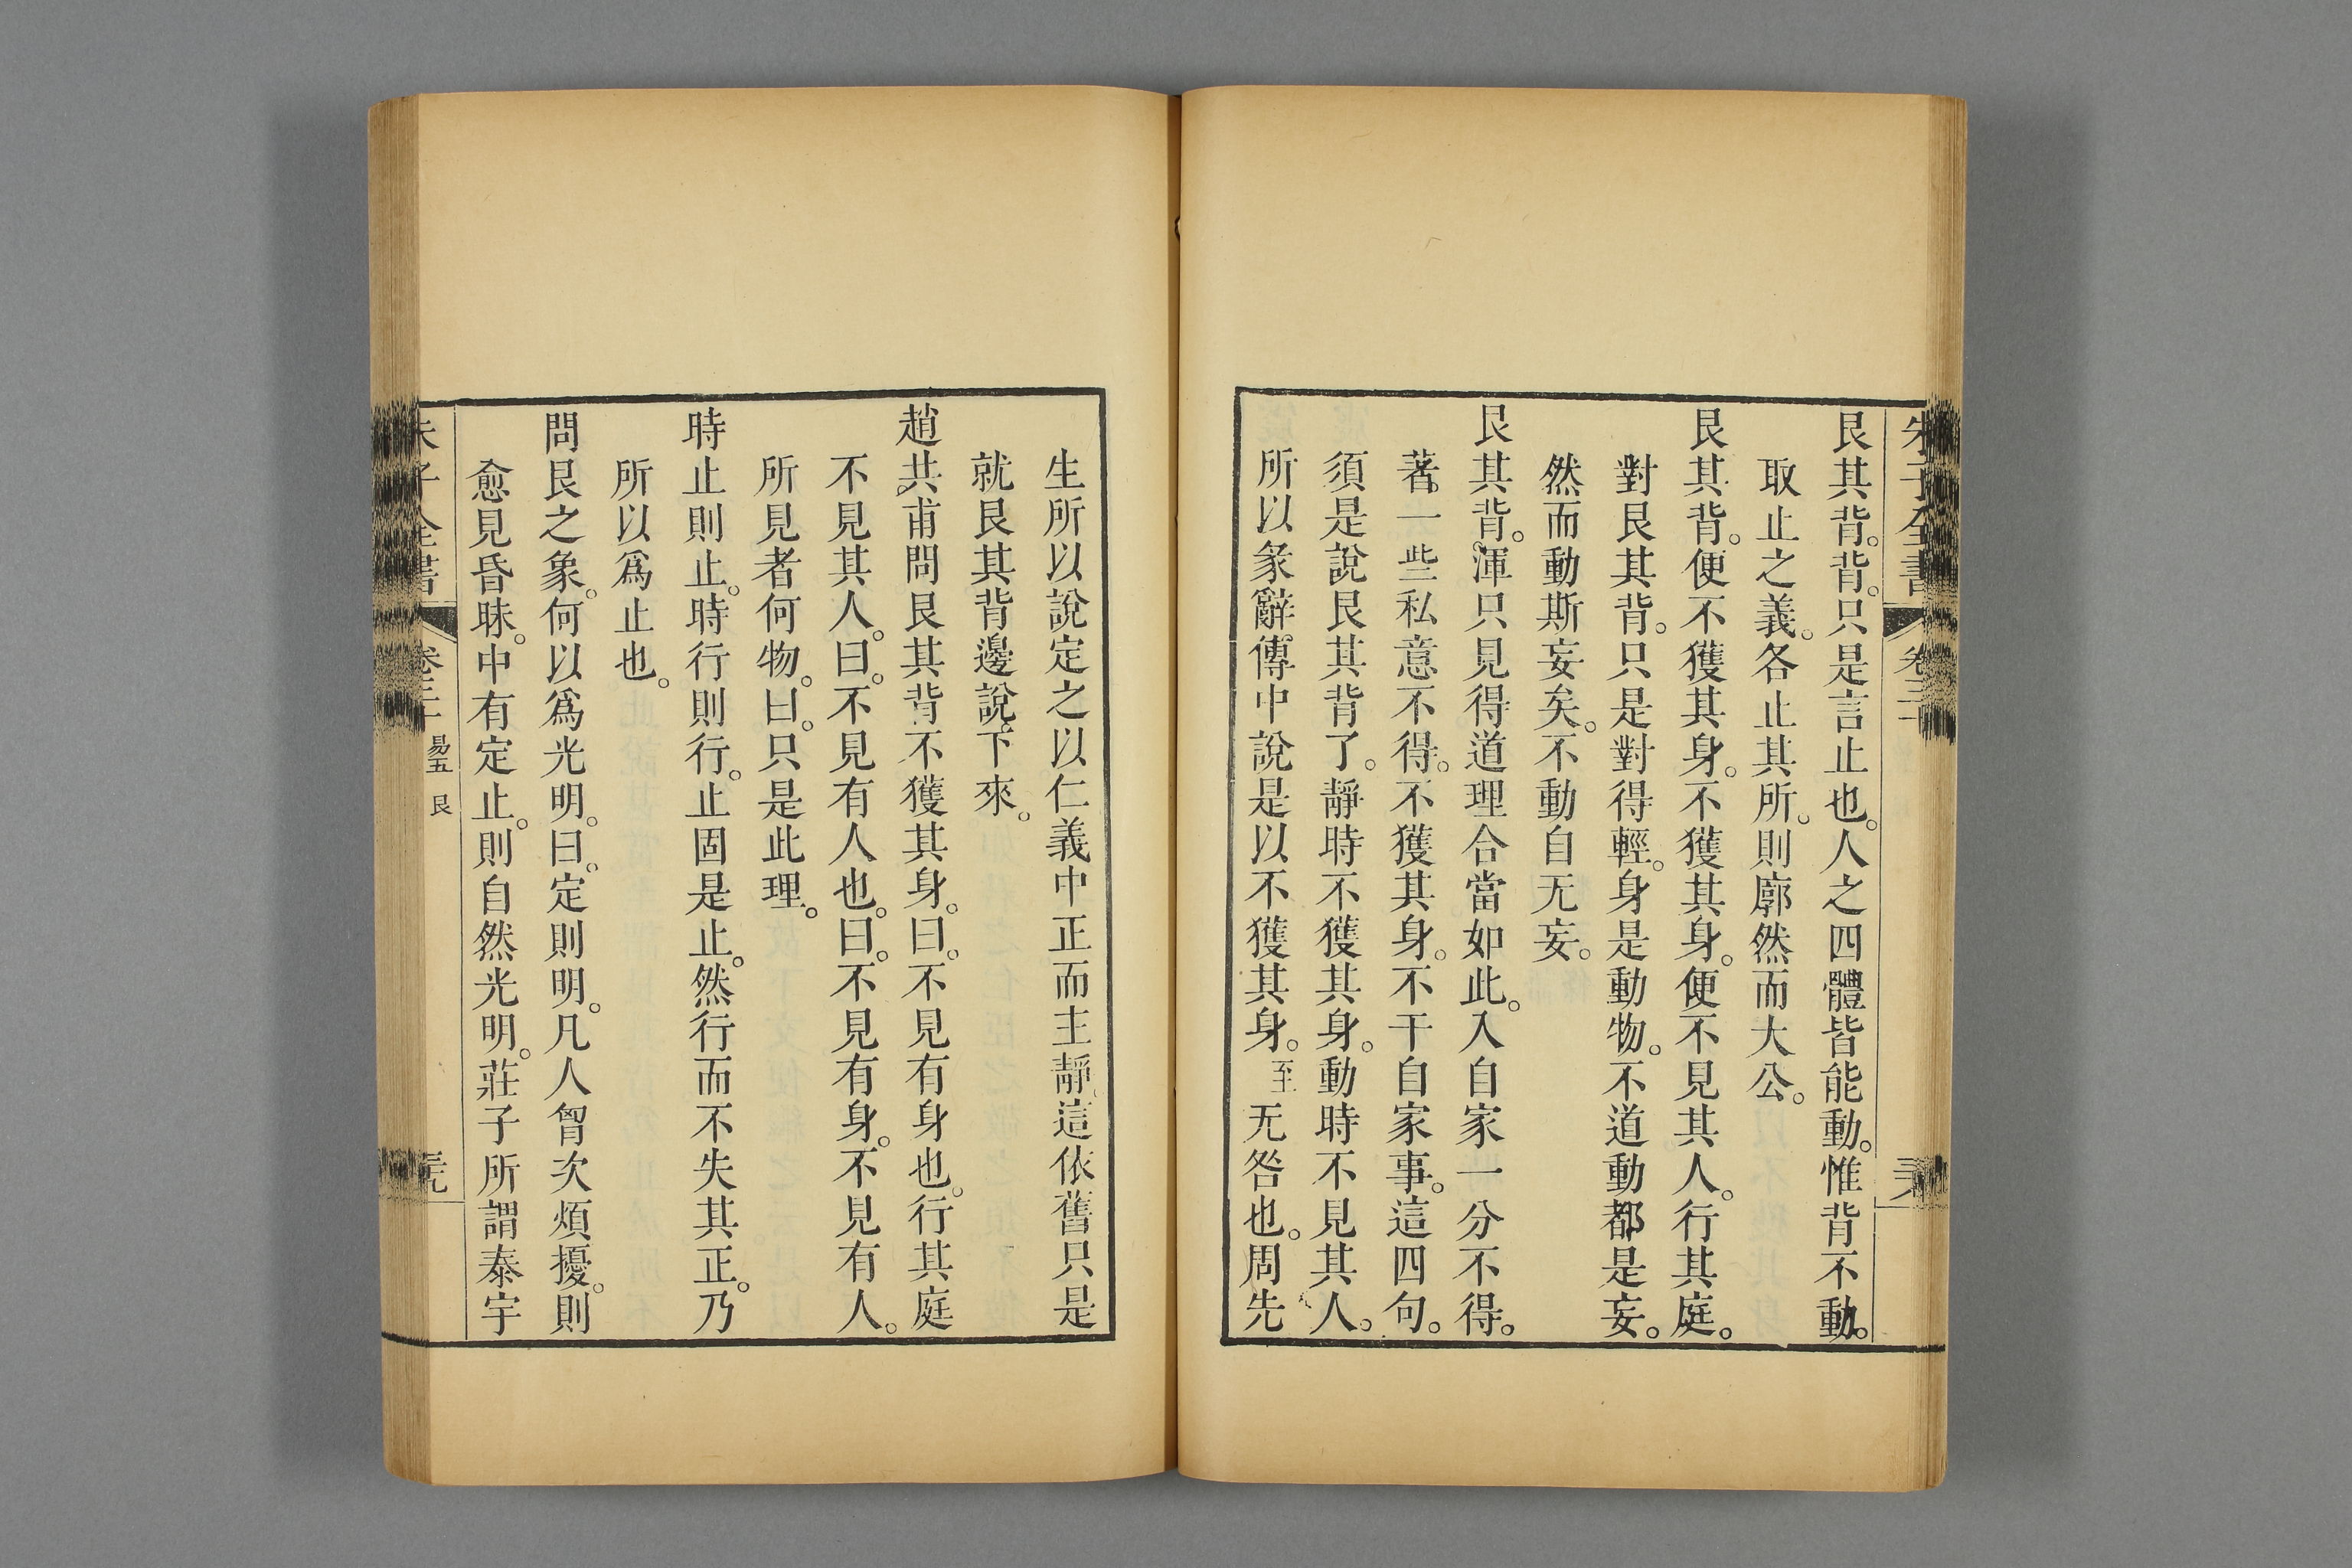 朱子全書 卷三十
艮其背。背。只是言止也。人之四體皆能動。惟背不動。
取止之義。各止其所。則廓然而大公。
艮其背。便不獲其身。不獲其身。便不見其人。行其庭。
對艮其背。只是對得輕。身是動物。不道動都是妄。
然而動斯妄矣。不動自无妄。
艮其背。渾只見得道理合當如此。入自家一分不得。
著一些私意不得。不獲其身。不干自家事。這四句。
須是說艮其背了。靜時不獲其身。動時不見其人。
所以彖辭傳中說是以不獲其身。至无咎也。周先
生所以說定之以仁義中正而主靜。這依舊只是
就艮其背邊說下來。
趙共甫問艮其背不獲其身。曰。不見有身也。行其庭
不見其人。曰。不見有人也。曰。不見有身。不見有人。
所見者何物。曰。只是此理。
時止則止。時行則行。止固是止。然行而不失其正。乃
所以爲止也。
問艮之象。何以爲光明。曰。定則明。凡人胷次煩擾。則
愈見昏昧。中有定止。則自然光明。莊子所謂泰宇
朱子全書 卷三十 易五 艮 三九